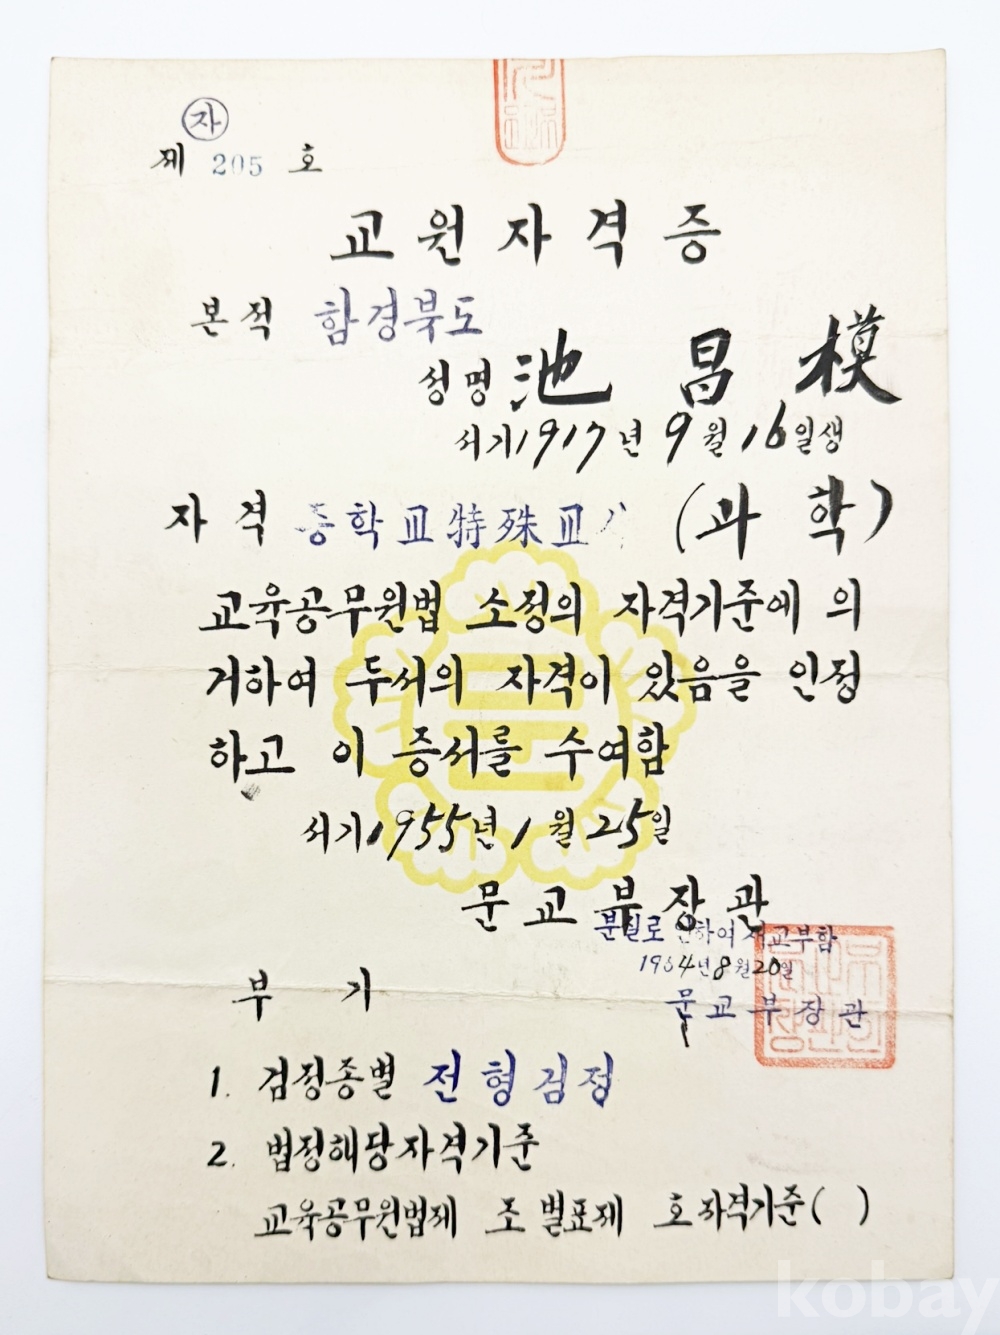 자
제 205 호
교원자격증
본적 함경북도
성명 池昌模
서기 1917년 9월 16일생
자격 중학교特殊교사 (과학)
교육공무원법 소정의 자격기준에 의
거하여 두서의 자격이 있음을 인정
하고 이 증서를 수여함
서기 1955년 1월 25일
문교부장관
분실로 인하여 재교부함
1964년 8월 20일
문교부장관
부기
1. 검정종별 전형검정
2. 법정해당자격기준
교육공무원법제 조 별표제 호 자격기준( )
kobay